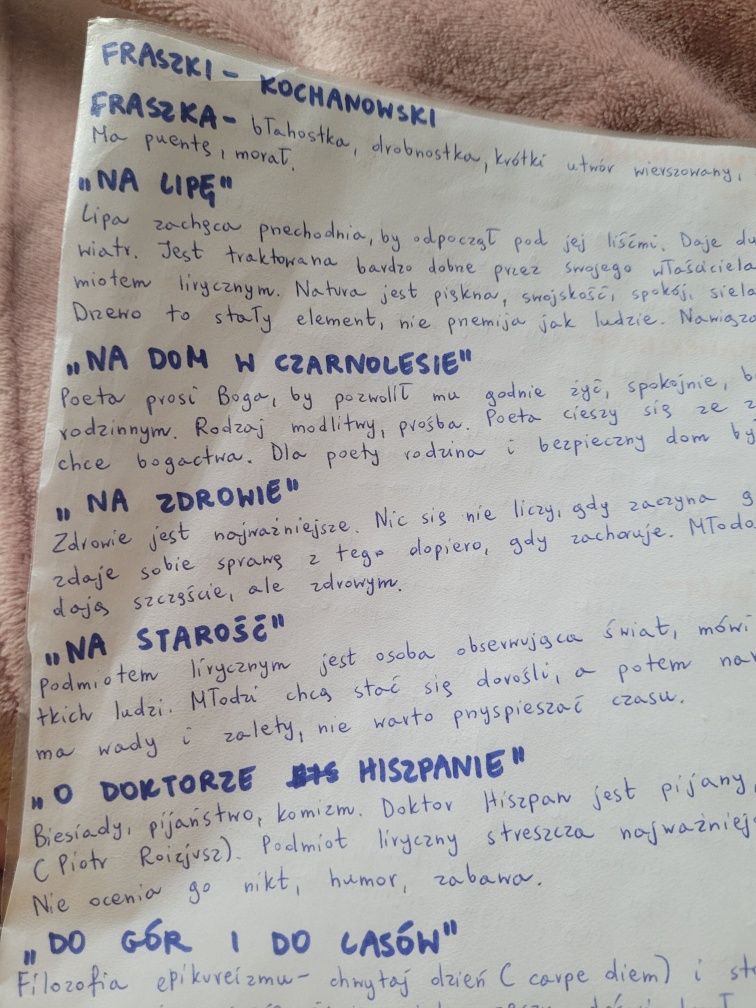 FRASZKI - KOCHANOWSKI
FRASZKA - błahostka, drobnostka, krótki utwór wierszowany,
Ma puentę, morał.
"NA LIPĘ"
Lipa zachęca przechodnia, by odpoczął pod jej liśćmi. Daje
wiatr. Jest traktowana bardzo dobrze przez swojego właściciela
miotem lirycznym. Natura jest piękna, swojskość, spokój,
Drzewo to stały element, nie przemija jak ludzie.
"NA DOM W CZARNOLESIE"
Poeta prosi Boga, by pozwolił mu godnie żyć, spokojnie,
rodzinnym. Rodzaj modlitwy, prośba. Poeta cieszy się ze
chce bogactwa. Dla poety rodzina i bezpieczny dom
"NA ZDROWIE"
Zdrowie jest najważniejsze. Nic się nie liczy, gdy zaczyna
zdaje sobie sprawę z tego dopiero, gdy zachoruje.
dają szczęście, ale zdrowym.
"NA STAROŚĆ"
Podmiotem lirycznym jest osoba obserwująca świat, mówi
tkich ludzi. Młodzi chcą stać się dorośli, a potem
ma wady i zalety, nie warto przyspieszać czasu.
"O DOKTORZE HISZPANIE"
Biesiady, pijaństwo, komizm. Doktor Hiszpan jest pijany,
(Piotr Roizjusz). Podmiot liryczny streszcza
Nie ocenia go nikt, humor, zabawa.
"DO GÓR I DO LASÓW"
Filozofia epikureizmu - chwytaj dzień (carpe diem) i